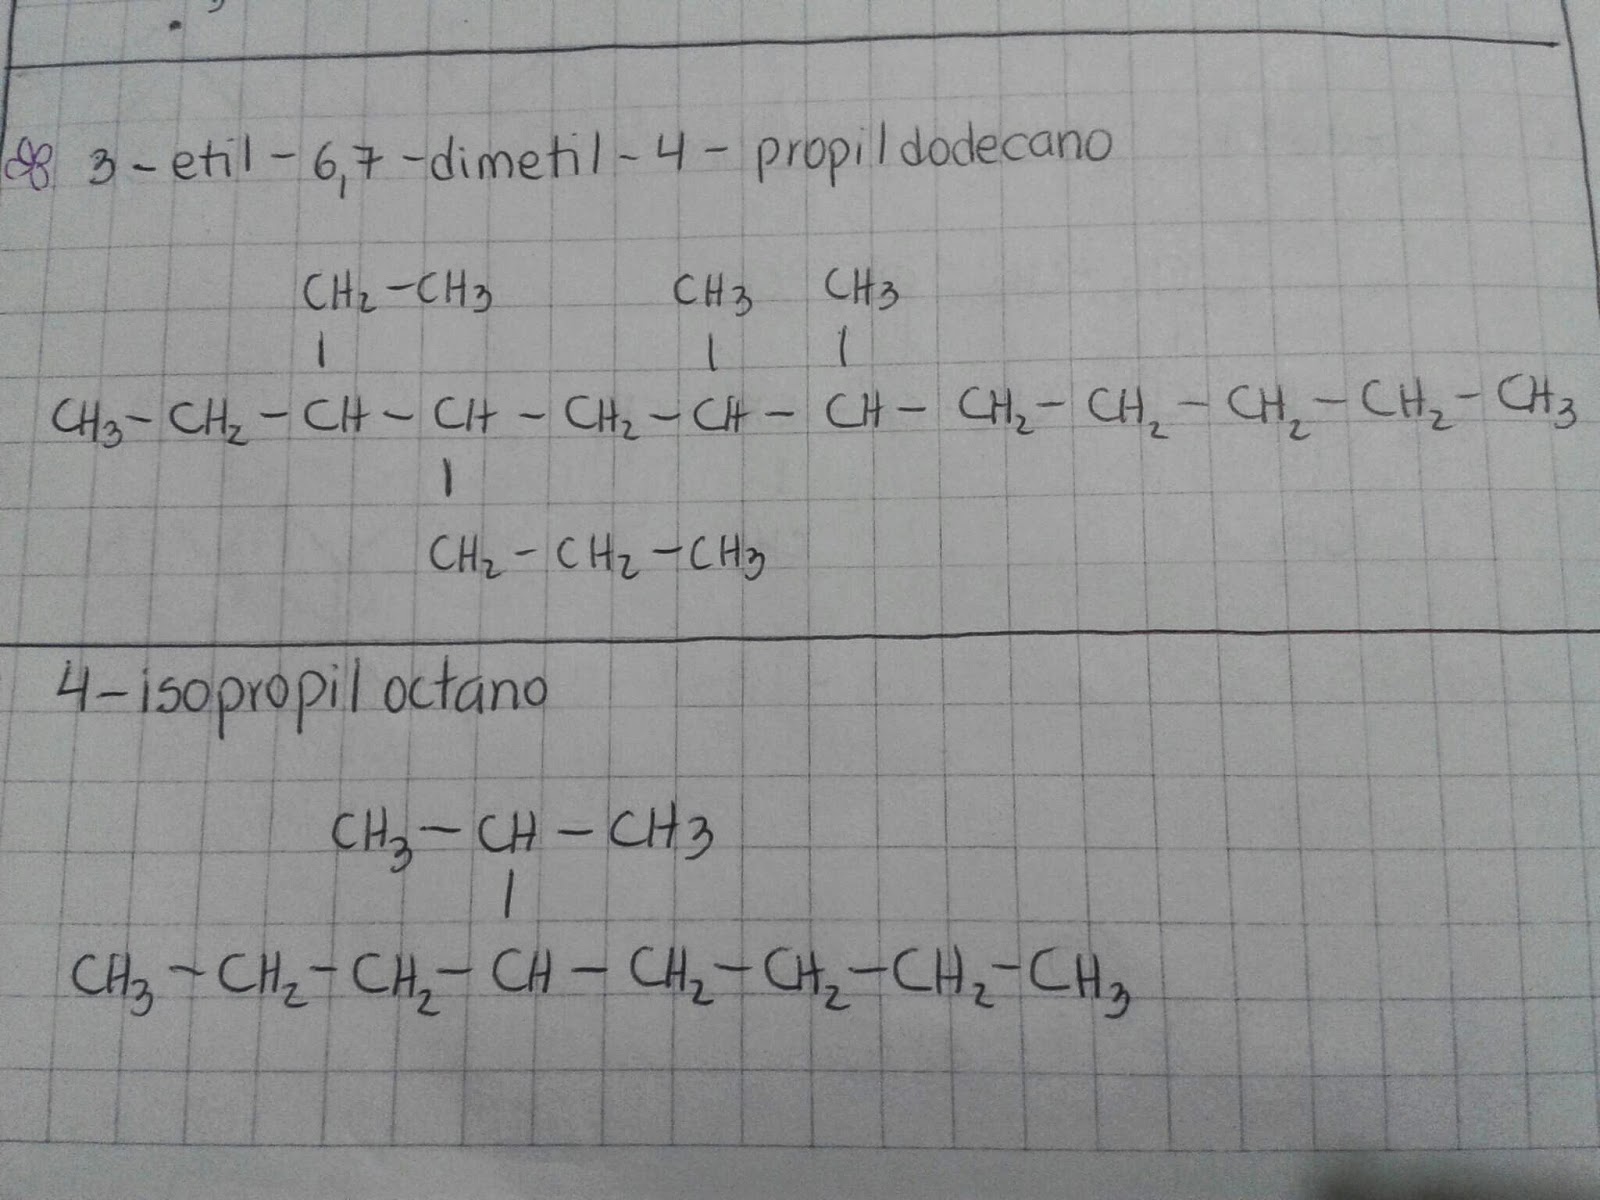 3-etil-6,7-dimetil-4-propildodecano
CH₂-CH₃ CH₃ CH₃
CH₃-CH₂-CH-CH-CH₂-CH-CH-CH₂-CH₂-CH₂-CH₂-CH₃
CH₂-CH₂-CH₃
4-isopropil octano
CH₃-CH-CH₃
CH₃-CH₂-CH₂-CH-CH₂-CH₂-CH₂-CH₃